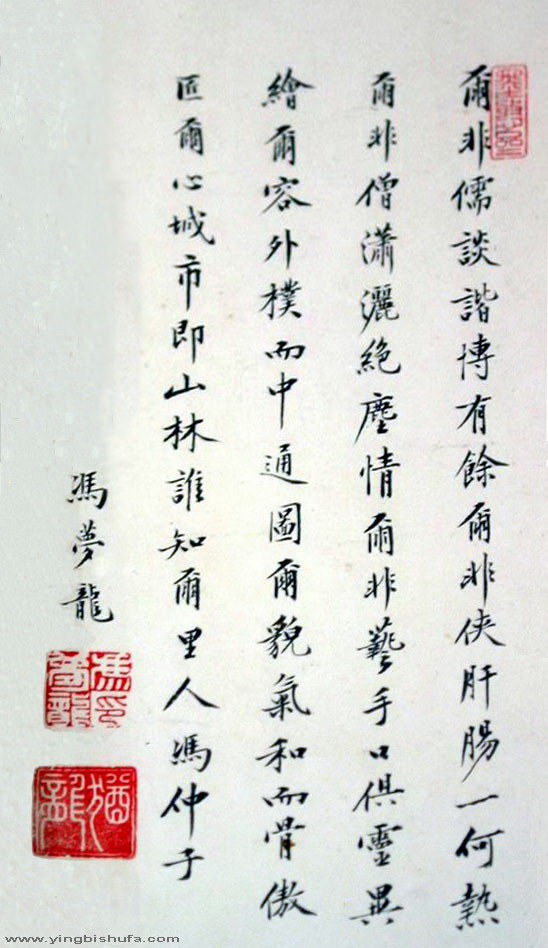 爾非儒談諧博有餘爾非俠肝腸一何熱
爾非僧瀟灑絕塵情爾非藝手口俱靈異
繪爾容外樸而中通圖爾貌氣和而骨傲
匡爾心城市即山林誰知爾里人馮仲子
馮夢龍
馮夢龍印
猶龍
www.yingbishufa.com